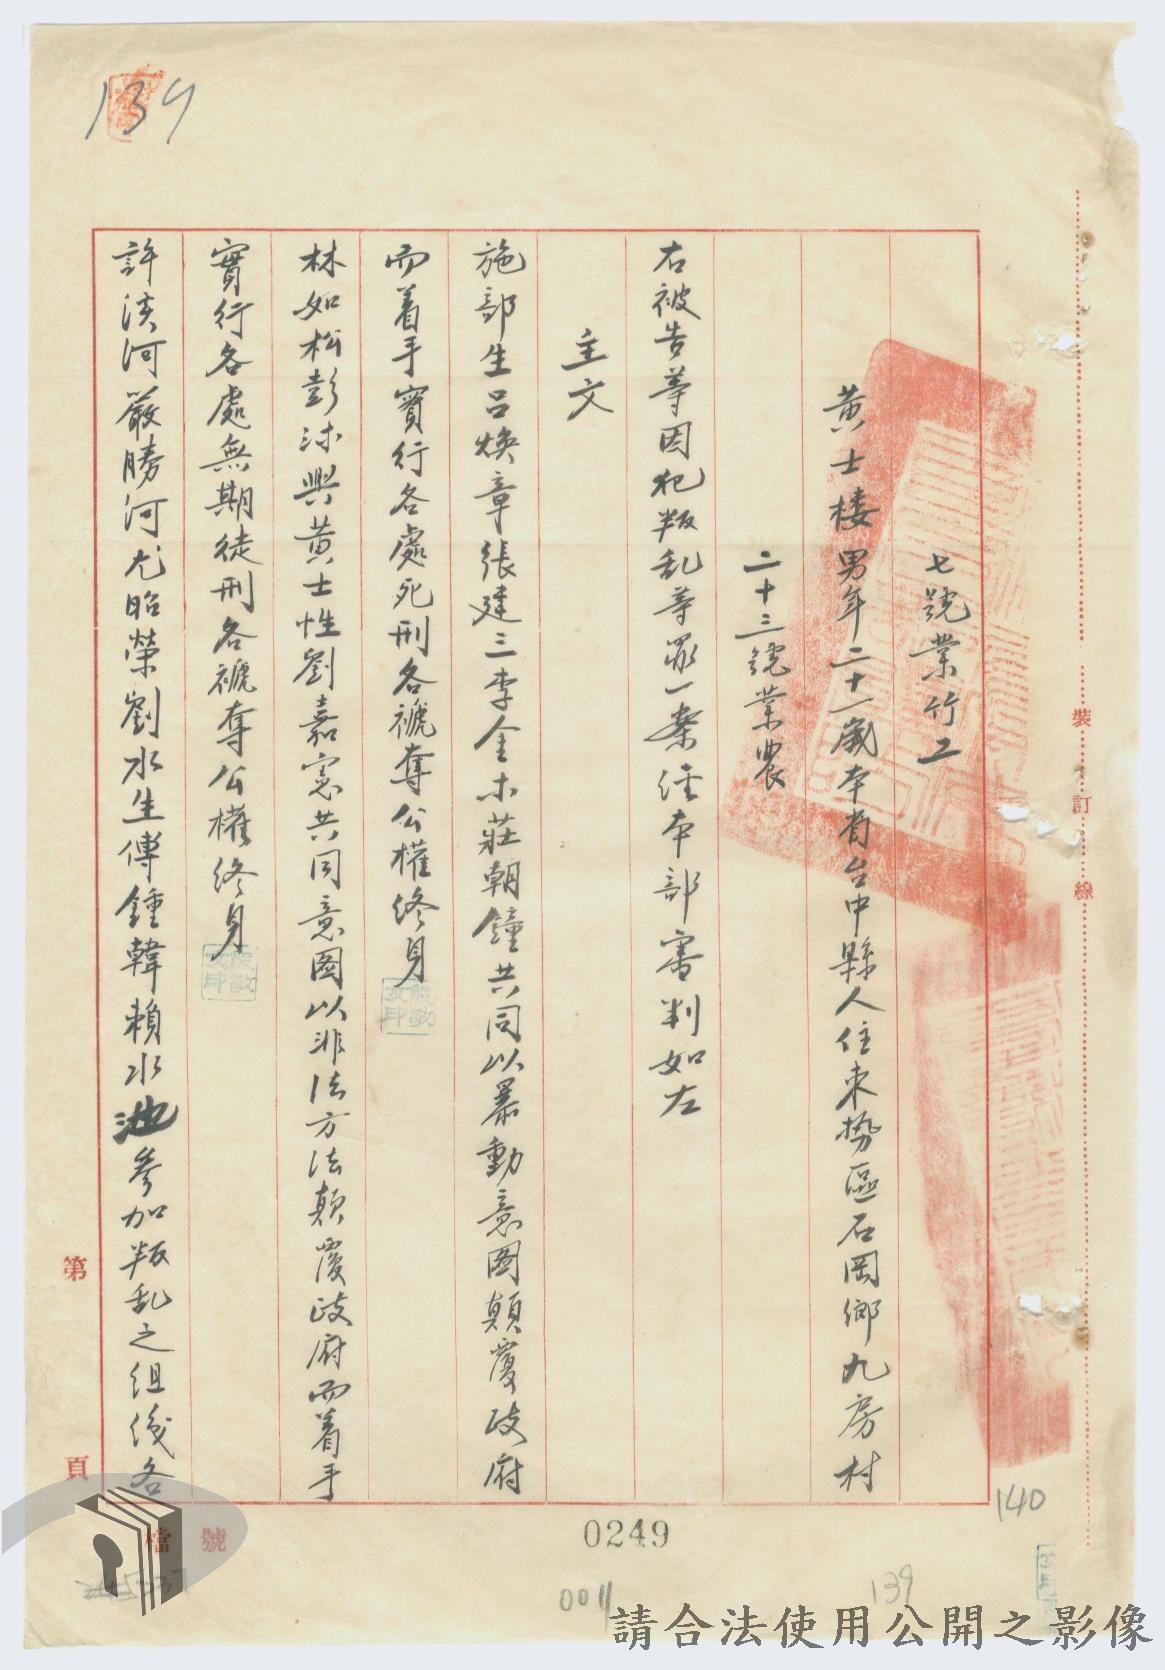 139
七號業竹工
黃士棲男年二十一歲本省台中縣人住東勢區石岡鄉九房村
二十三號業農
右被告等因犯叛乱等罪一案經本部審判如左
主文
施部生呂煥章張建三李金木莊朝鐘共同以暴動意圖顛覆政府
而着手實行各處死刑各褫奪公權終身
林如松彭沐興黃士性劉嘉憲共同意圖以非法方法顛覆政府而着手
實行各處無期徒刑各褫奪公權終身
許淡河嚴勝河尤昭榮劉水生傅鍾韓賴水池參加叛乱之組織各
裝
訂
線
第
頁
檔號
0249
0011
139
140
請合法使用公開之影像